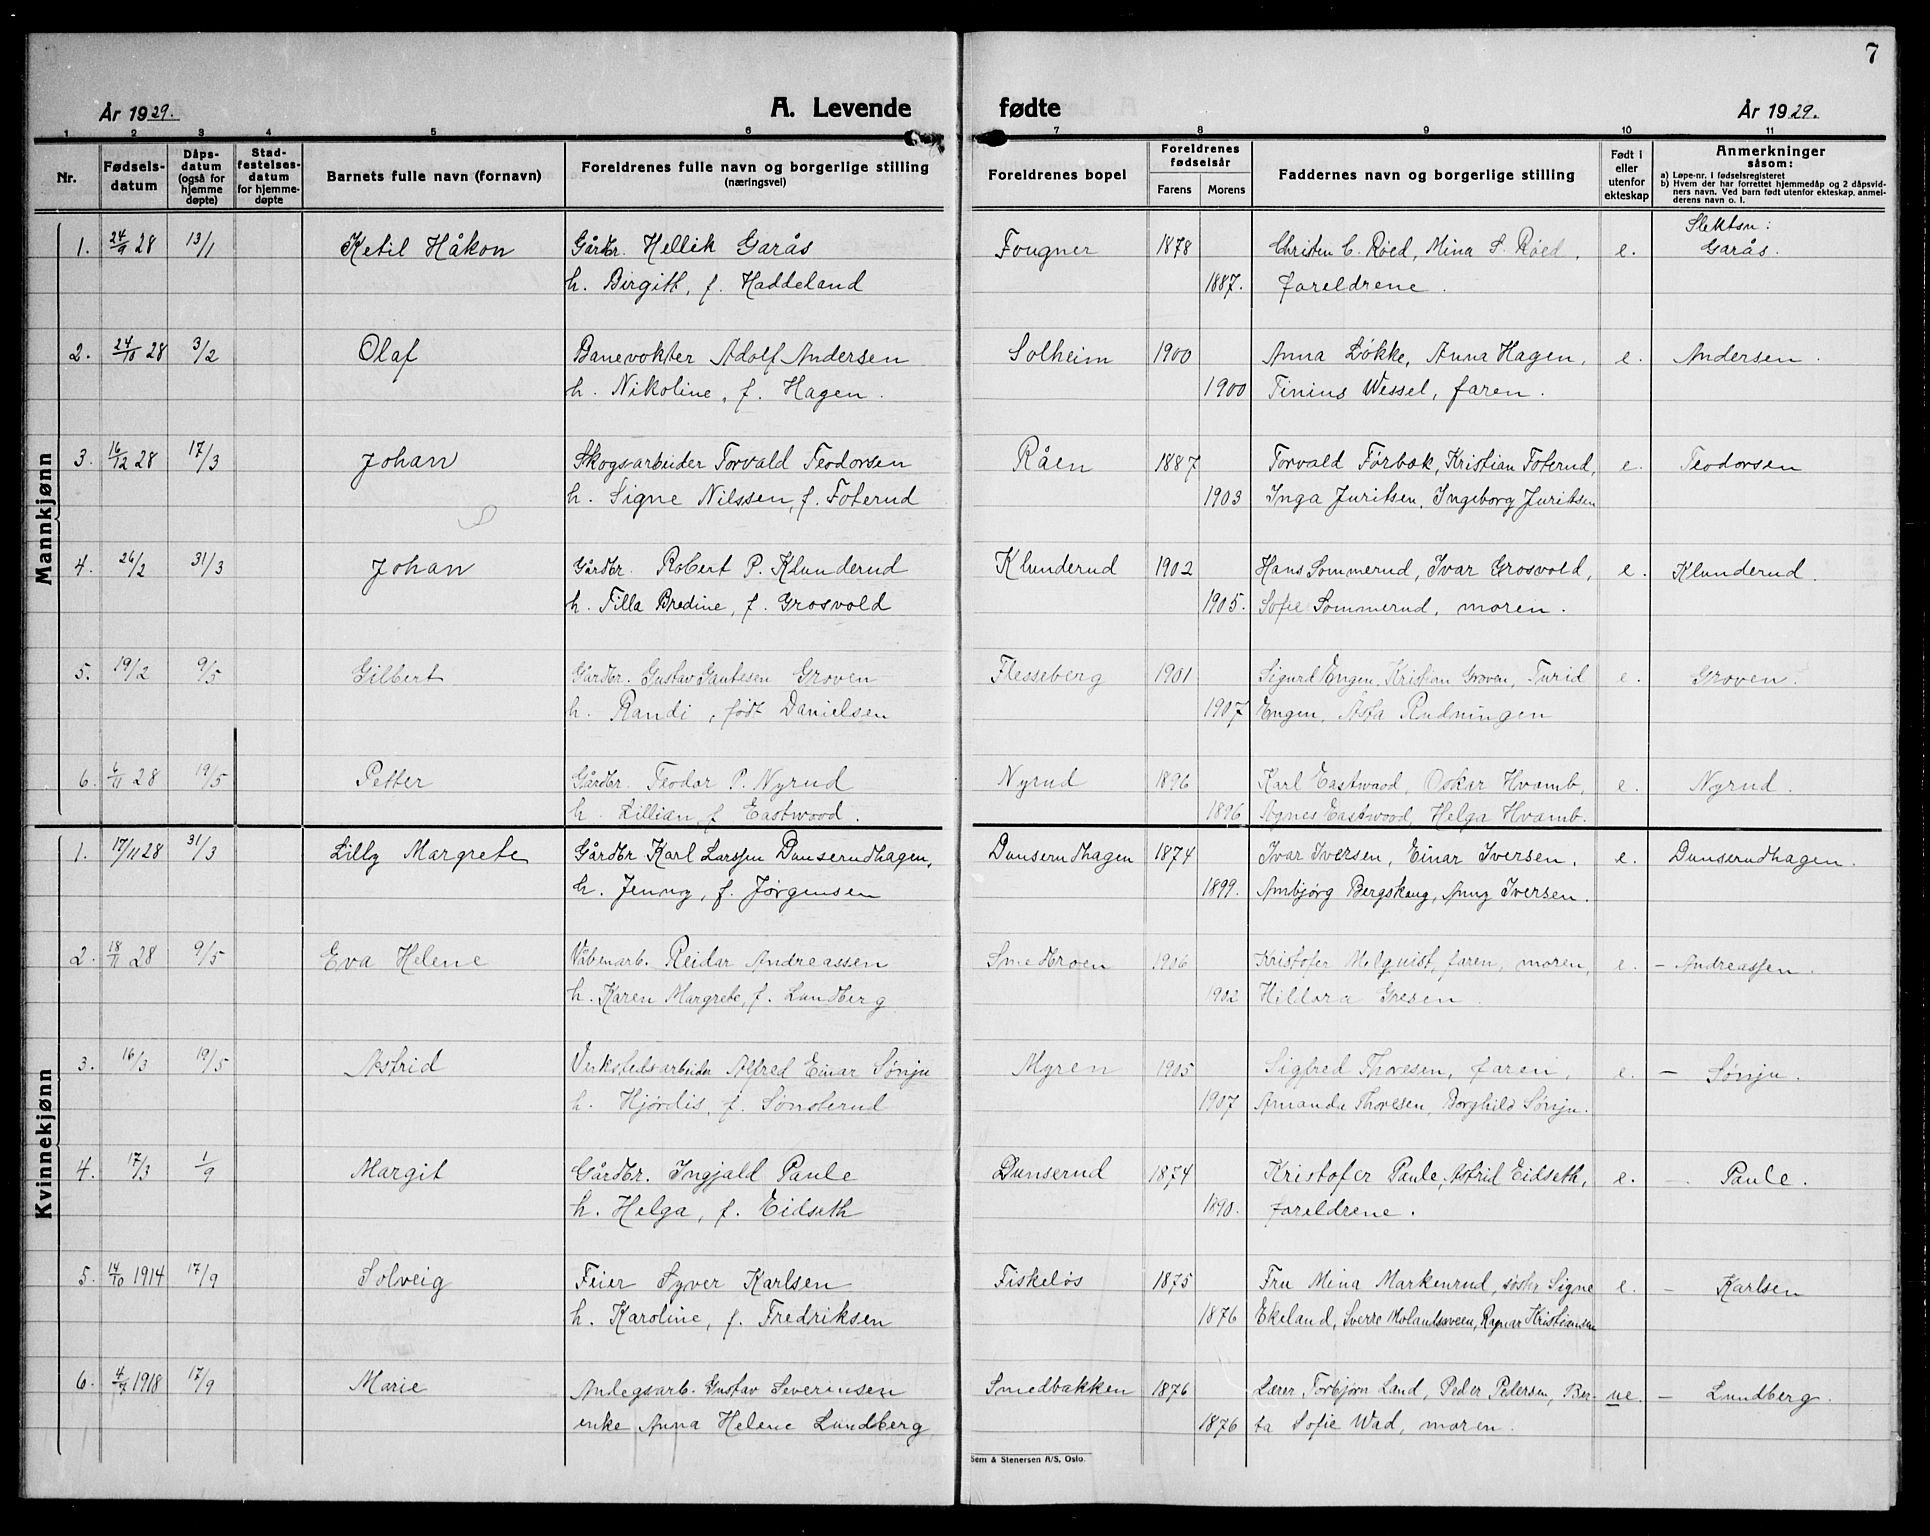 7
År 1929. A. Levende fødte År 1929.
1 2 3 4 5 6 7 8 9 10 11
Nr. Fødselsdatum Dåpsdatum (også for hjemmedøpte) Stadfestelsesdatum for hjemmedøpte Barnets fulle navn (fornavn) Foreldrenes fulle navn og borgerlige stilling (næringsvei) Foreldrenes bopel Foreldrenes fødselsår Farens Morens Faddernes navn og borgerlige stilling Født i eller utenfor ekteskap Anmerkninger såsom: a) Løpe-nr. i fødselsregisteret b) Hvem der har forrettet hjemmedåp og 2 dåpsvidners navn. Ved barn født utenfor ekteskap, anmelderens navn o. l.
Mannkjønn
Slektsn:
1. 24/9 28 13/1 Ketil Håkon Gårdbr. Hellik Garås Fougner 1878 Christen C. Røed, Mina S. Røed, e. Garås.
h. Birgith, f. Haddeland 1887. foreldrene.
2. 24/10 28 3/2 Olaf Banevokter Adolf Andersen Solheim 1900 Anna Løkke, Anna Hagen, e. Andersen.
h. Nikoline, f. Hagen. 1900 Tinius Wessel, faren.
3. 16/12 28 17/3 Johan Skogsarbeider Torvald Teodorsen Råen 1887 Torvald Førbek, Kristian Foterud, e. Teodorsen
h. Signe Nilssen, f. Foterud 1903 Inga Juritsen, Ingeborg Juritsen
4. 26/2 31/3 Johan Gårdbr. Robert P. Klunderud Klunderud 1902 Hans Sommerud, Ivar Grosvold, e. Klunderud.
h. Tilla Bredine, f. Grosvold 1905. Sofie Sommerud, moren.
5. 19/2 9/5 Gilbert Gårdbr. Gustav Gautesen Groven Flesseberg 1901 Sigurd Engen, Kristian Groven, Turid e. Groven.
h. Randi, født Danielsen 1907 Engen, Åsta Rudningen
6. 6/11 28 19/5 Petter Gårdbr. Teodor P. Nyrud Nyrud 1896 Karl Eastwood, Oskar Hvamb, e. Nyrud.
h. Lillian, f. Eastwood. 1896 Agnes Eastwood, Helga Hvamb.
Kvinnekjønn
1. 17/11 28 31/3 Lilly Margrete Gårdbr Karl Larssen Dunserudhagen, Dunserudhagen 1874 Ivar Iversen, Einar Iversen, e. Dunserudhagen.
h. Jenny, f. Jørgensen 1899. Ambjørg Bergskaug, Anny Iversen.
2. 18/11 28 9/5 Eva Helene Våbenarb. Reidar Andreassen Smedbroen 1906 Kristofer Melquist, faren, moren, e. – Andreassen.
h. Karen Margrete, f. Lundberg 1902 Hillora Gresen.
3. 16/3 19/5 Astrid Verkstedsarbeider Alfred Einar Sønju Myren 1905 Sigfred Thoresen, faren, e. – Sønju.
h. Hjørdis, f. Sønsterud 1907 Amanda Thoresen, Borghild Sønju.
4. 17/3 1/9 Margit Gårdbr. Ingjald Paule Dunserud 1874 Kristofer Paule, Astrid Eidseth, e. – Paule.
h. Helga, f. Eidseth 1890. foreldrene.
5. 14/10 1914 17/9 Solveig Feier Syver Karlsen Fiskeløs 1875 Fru Mina Markerud, søster Signe e. – Karlsen
h. Karoline, f. Fredriksen 1876 Ekeland, Sverre Molandsveen, Ragnar Kristiansen
6. 4/7 1918 17/9 Marie Anlegsarb. Gustav Severinsen Smedbakken 1876 Lærer Torbjørn Land, Peder Petersen, Ber- ue. – Lundberg.
enke Anna Helene Lundberg 1876 ta Sofie Wad, moren.
Sem & Stenersen A/S, Oslo.